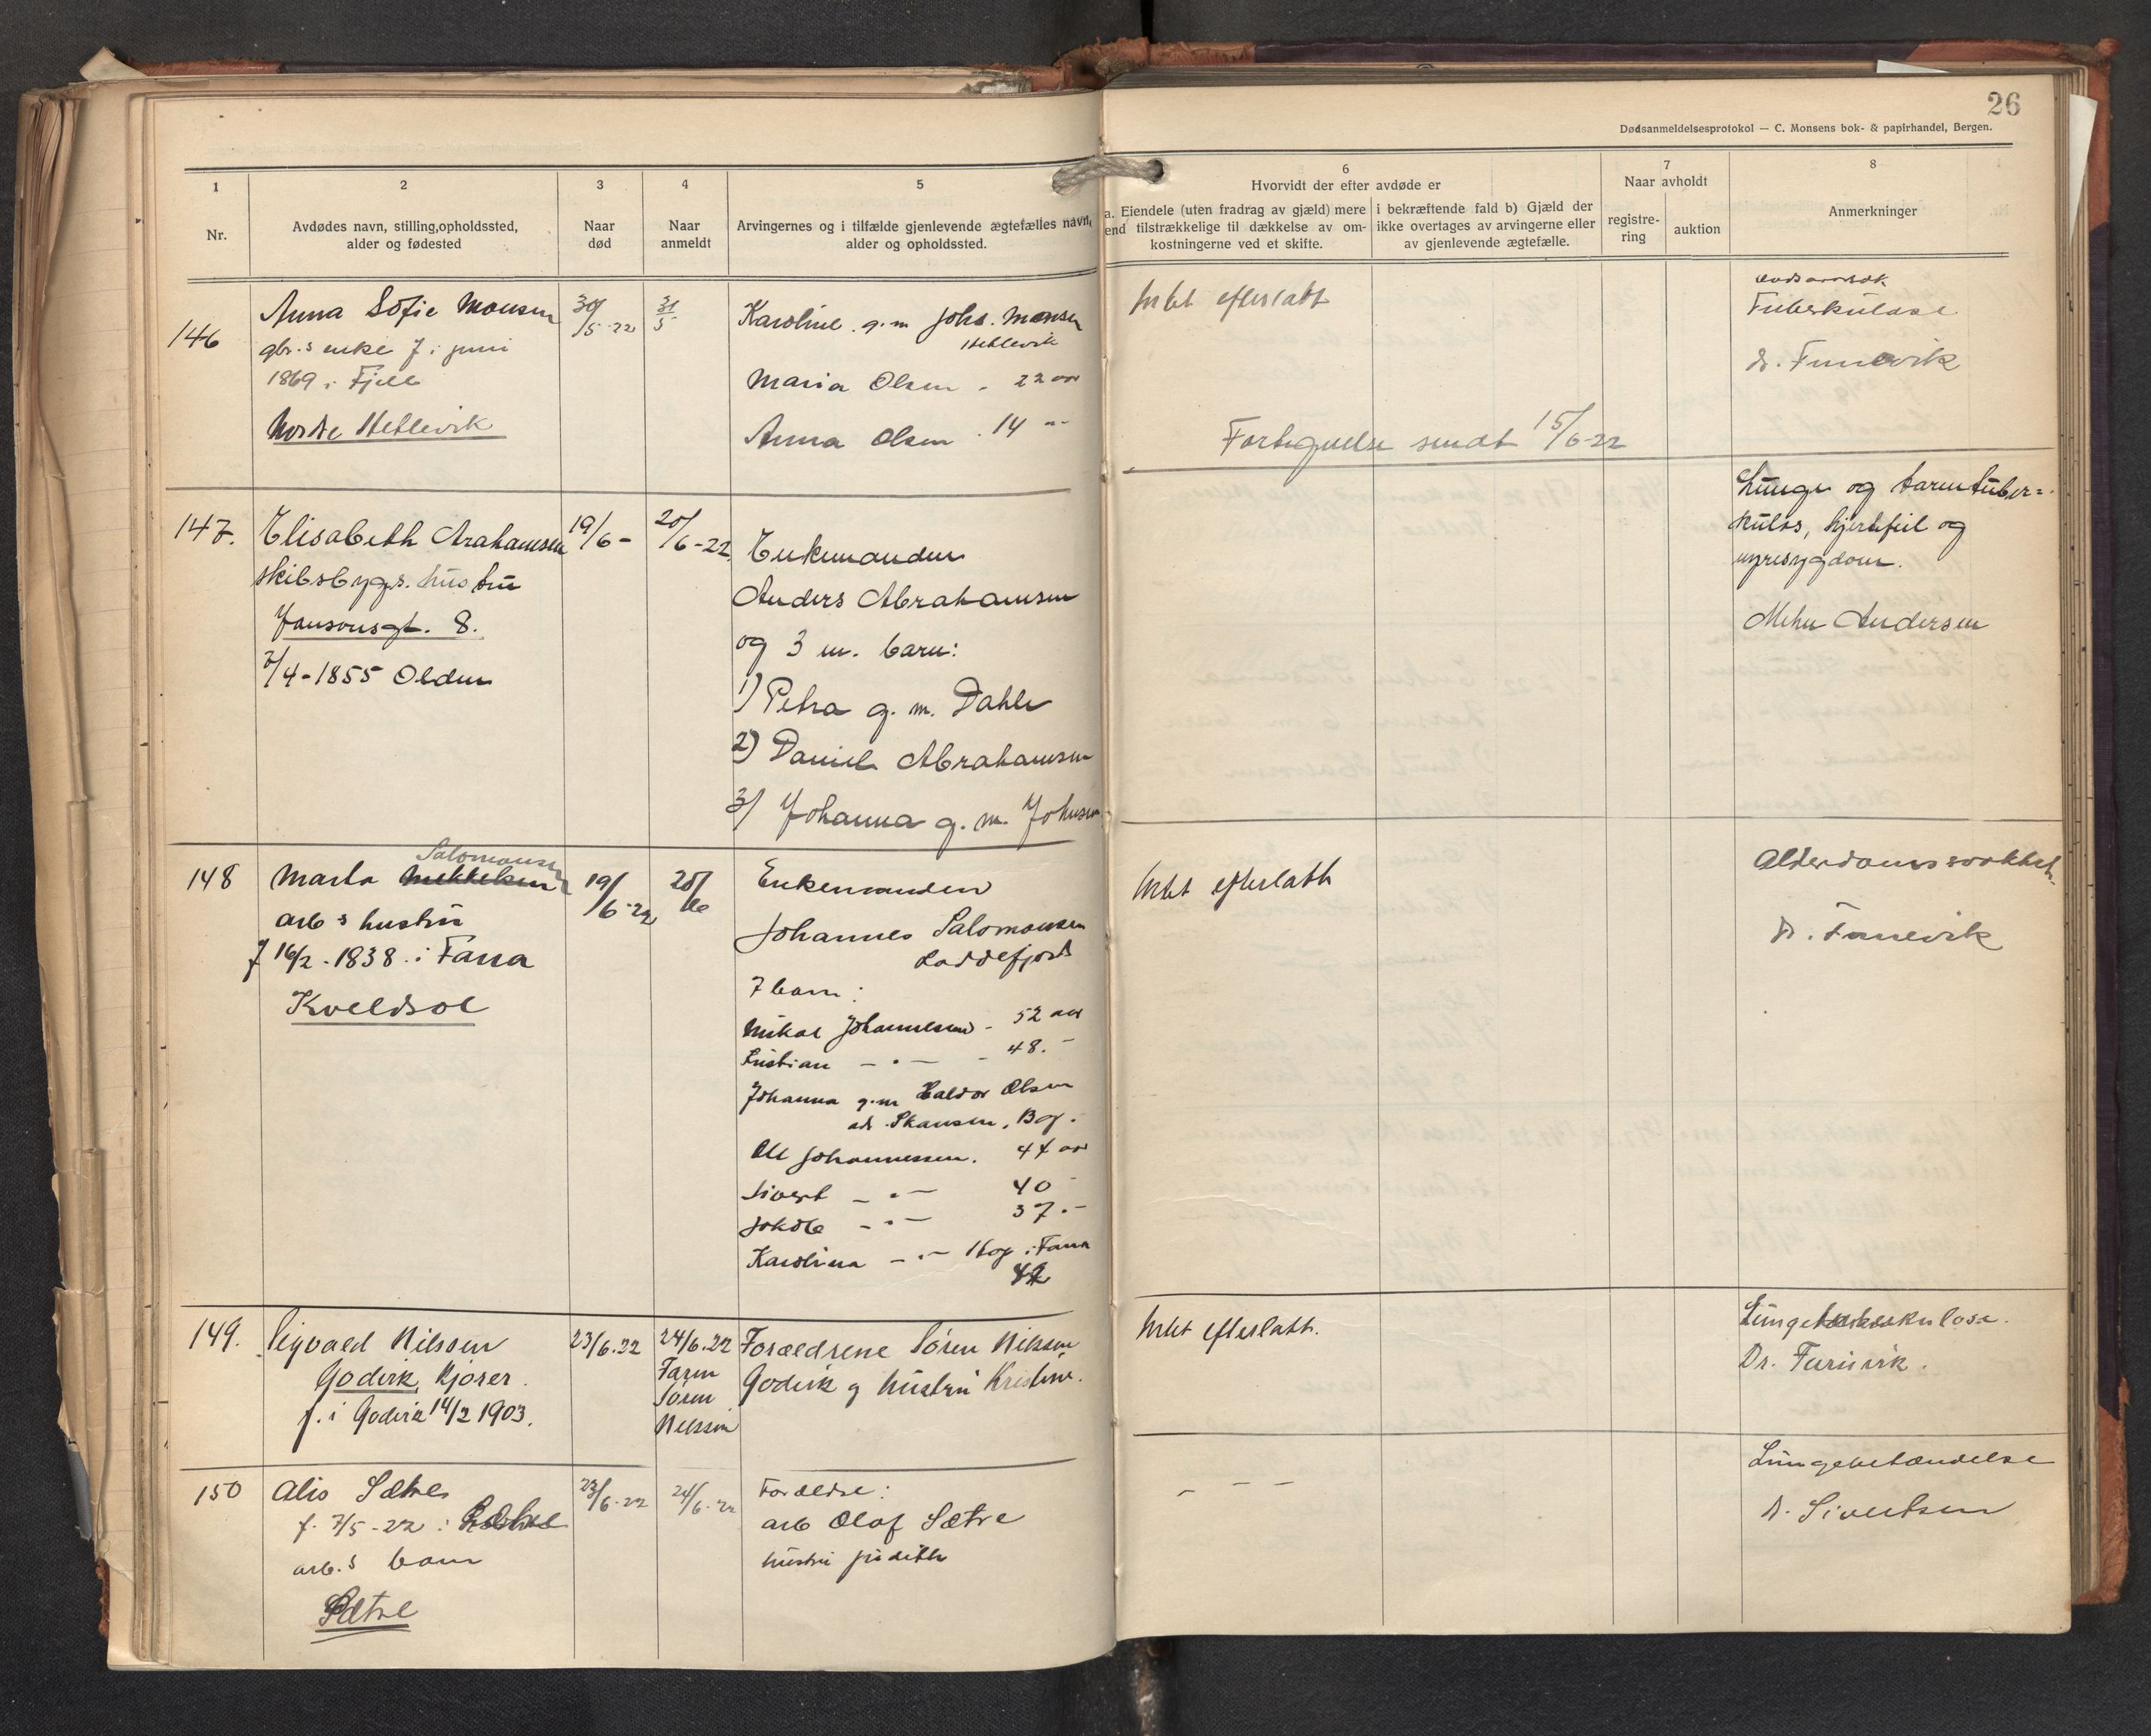 26
Dødsanmeldelsesprotokol — C. Monsens bok- & papirhandel, Bergen.
1
Nr.
2
Avdødes navn, stilling, opholdssted,
alder og fødested
3
Naar
død
4
Naar
anmeldt
5
Arvingernes og i tilfælde gjenlevende ægtefælles navn,
alder og opholdssted.
6
Hvorvidt der efter avdøde er
a. Eiendele (uten fradrag av gjæld) mere
end tilstrækkelige til dækkelse av om-
kostningerne ved et skifte.
i bekræftende fald b) Gjæld der
ikke overtages av arvingerne eller
av gjenlevende ægtefælle.
7
Naar avholdt
registre-
ring
auktion
8
Anmerkninger
146
Anna Sofie Monsen
gbr.s enke f. i juni
1869 i Fjell
Nordre Hetlevik
30/5-22
31/5
Karoline g.m Johs. Monsen
Hetlevik
Maria Olsen - 22 aar
Anna Olsen - 14 -"-
Intet efterlatt
Fortegnelse sendt 15/6-22
Tuberkulose
dr. Furuvik
147.
Elisabeth Arahamsen
skibsbygs. hustru
Jansonsgt. 8.
7/4-1855 Olden
19/6-
20/6-22
Enkemanden
Anders Abrahamsen
og 3 m. barn:
1) Petra g. m. Dahle
2) Daniel Abrahamsen
3) Johanna g. m. Johnsen
Lunge og tarmtuber=
kulos, hjertefeil og
nyresygdom.
Mohn Andersen
148
Salomonsen
Marta Mikkelsen
arb s hustru
f 16/2-1838 i Fana
Kveldsol
19/6-22
20/6
Enkemanden
Johannes Salomonsen
Loddefjord
7 barn:
Mikal Johannesen - 52 aar
Kristian - " - - 48. -
Johanna g.m Haldor Olsen
Skansen, Bg.
Ole Johannessen. 44 aar
Sivert - " - 40 -
Jakob - " - 37. -
Karolina - " - Hop i Fana
42
Intet efterlatt
Alderdomssvakhet
dr. Furuvik
149.
Sigvald Nilssen
Godvik, kjører.
f. i Godvik 14/2 1903.
23/6.22
24/6.22
Faren
Søren
Nilssen
Forældrene Søren Nilssen
Godvik og hustru Kristine.
Intet efterlatt.
Lungetuberkulose.
Dr. Furuvik.
150
Alis Sætre
f. 7/5-22 i
arb.s barn
Sætre
23/6-22
24/6-22
Forældre:
arb Olaf Sætre
hustru Judith
- - -
Lungebetændelse
dr. Sivertsen